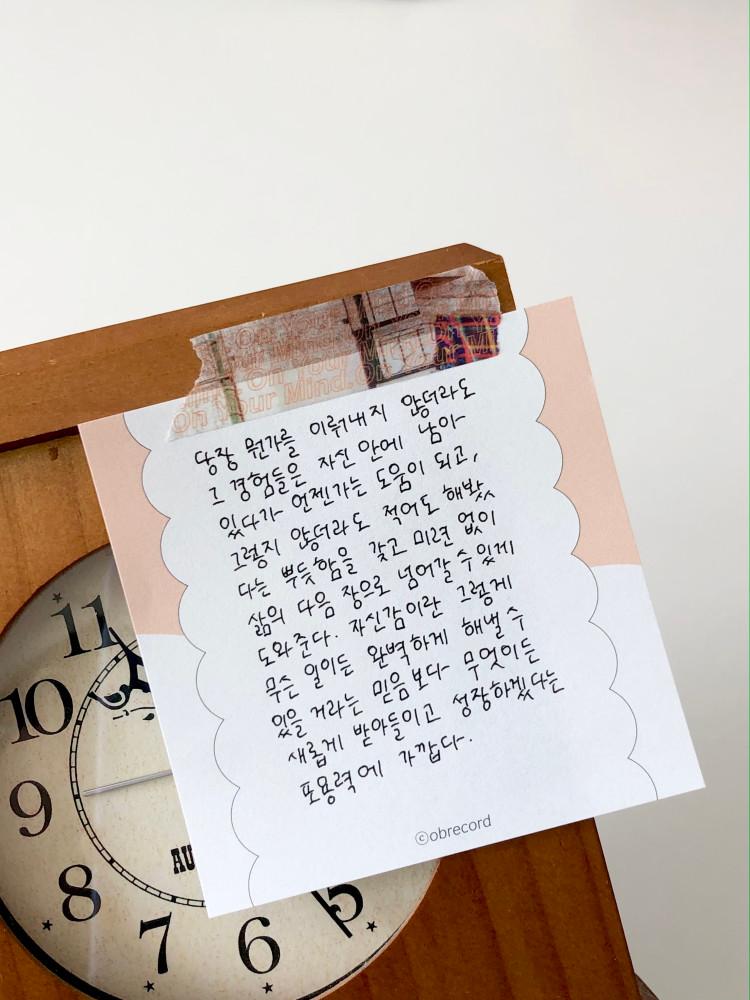 On Your Mind.
On Your Mind.
당장 뭔가를 이뤄내지 않더라도
그 경험들은 자신 안에 남아
있다가 언젠가는 도움이 되고,
그렇지 않더라도 적어도 해봤
다는 뿌듯함을 갖고 미련 없이
삶의 다음 장으로 넘어갈 수 있게
도와준다. 자신감이란 그렇게
무슨 일이든 완벽하게 해낼 수
있을 거라는 믿음보다 무엇이든
새롭게 받아들이고 성장하겠다는
포용력에 가깝다.
©obrecord
11
10
9
8
7
6
5
AU